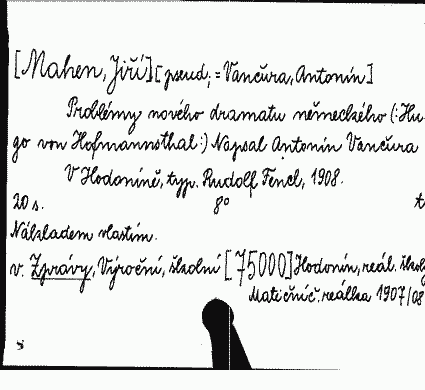 [Mahen, Jiří] [pseud; = Vančura, Antonín]
Problémy nového dramatu německého (: Hu-
go von Hofmannsthal :) Napsal Antonín Vančura
V Hodoníně, typ. Rudolf Fencl, 1908.
20 s. 8°
Nákladem vlastím.
v. Zprávy, Výroční, školní [75000] Hodonín, reál. školy
Matič. reálka 1907/08